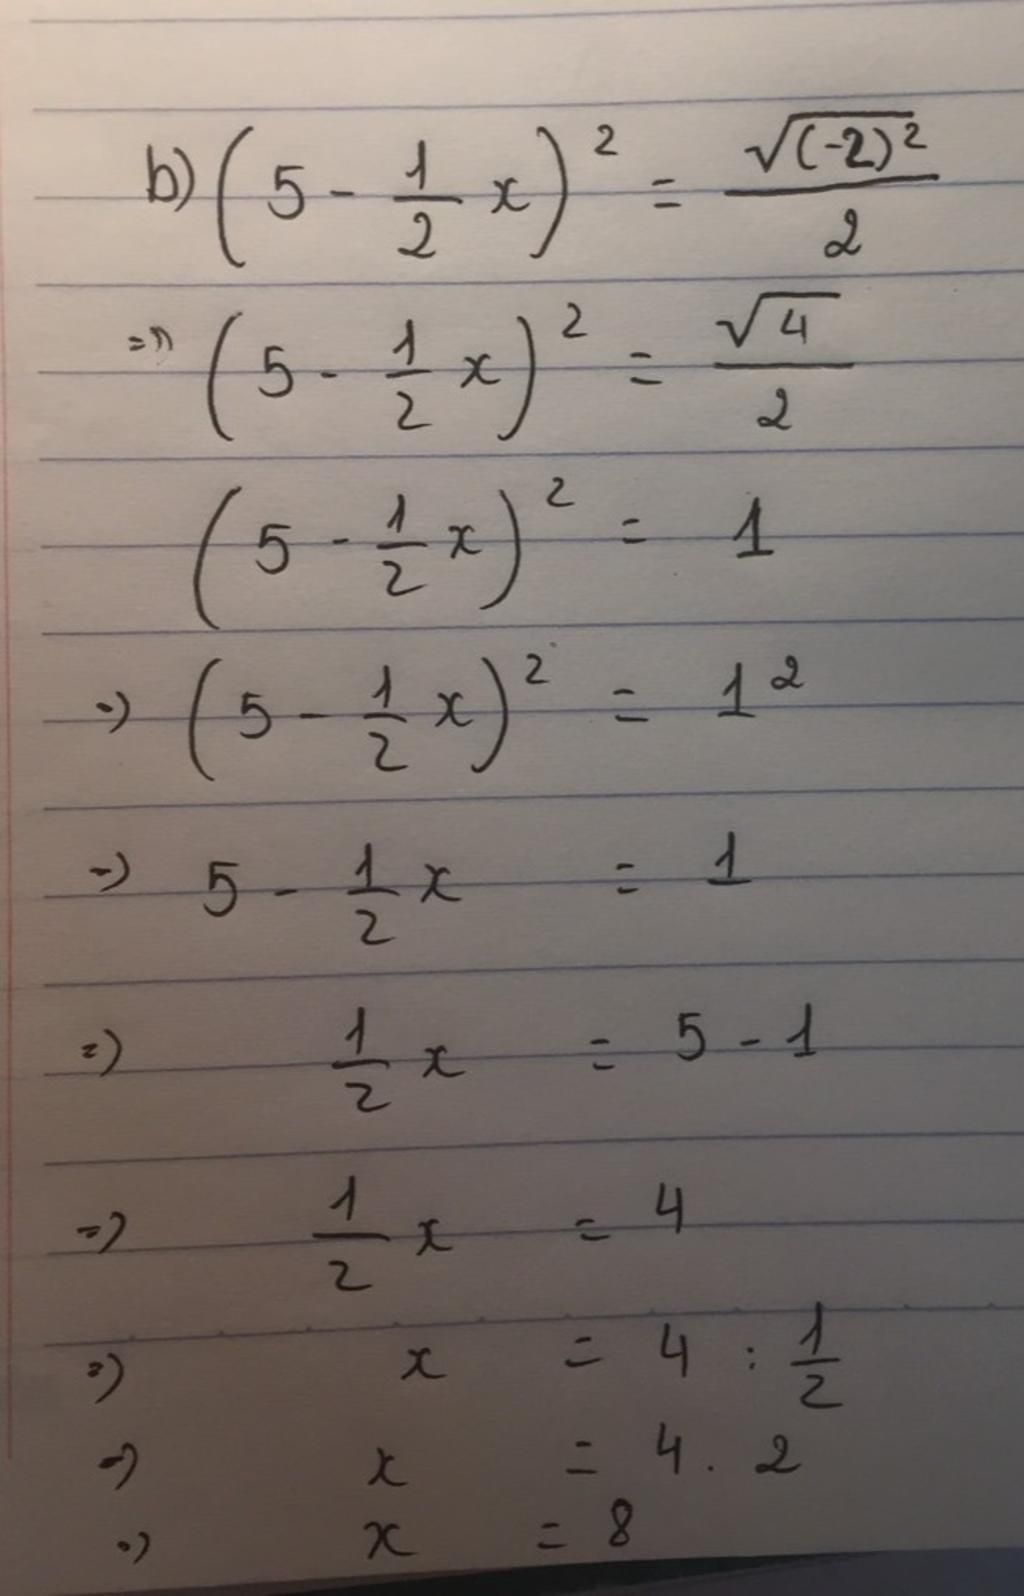 b) (5 - 1/2 x)² = √(-2)² / 2
=> (5 - 1/2 x)² = √4 / 2
(5 - 1/2 x)² = 1
=> (5 - 1/2 x)² = 1²
=> 5 - 1/2 x = 1
=> 1/2 x = 5 - 1
=> 1/2 x = 4
=> x = 4 : 1/2
=> x = 4 . 2
=> x = 8